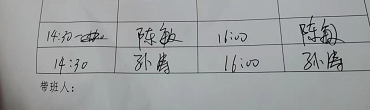 14:30 陈敏 16:00 陈敏
14:30 孙涛 16:00 孙涛
带班人：